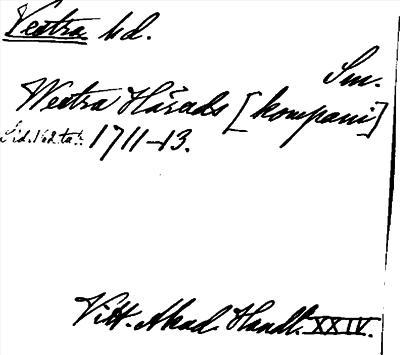 Vestra hd.
Sm.
Westra Härads [kompani]
1711-13.
Vitt. Akad. Handl. XXIV.